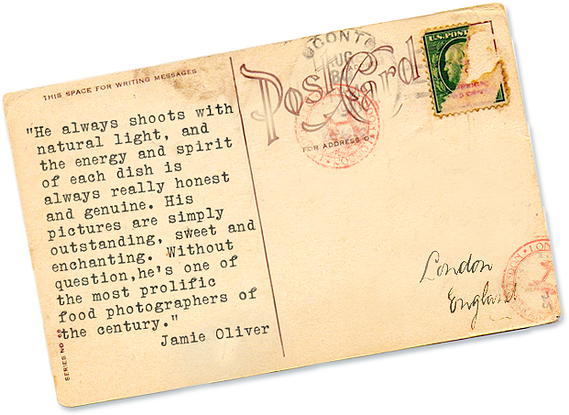 THIS SPACE FOR WRITING MESSAGES
"He always shoots with
natural light, and
the energy and spirit
of each dish is
always really honest
and genuine. His
pictures are simply
outstanding, sweet and
enchanting. Without
question,he's one of
the most prolific
food photographers of
the century."
Jamie Oliver
SERIES NO
Post Card
FOR ADDRESS
AUG
U.S. POST
London
England
LONDON